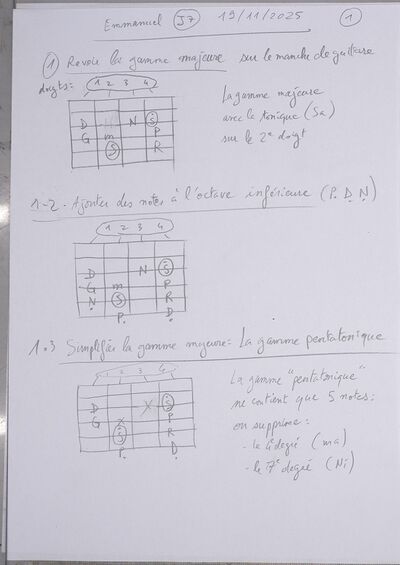 Emmanuel J7 19/11/2025 1
1 Revoir la gamme majeure sur le manche de guitare
doigts: 1 2 3 4
D N Ṡ
G m P
S R
La gamme majeure
avec la tonique (Sa)
sur le 2e doigt
1-2- Ajouter des notes à l'octave inférieure (Ṗ. Ḍ. Ṇ)
1 2 3 4
D N Ṡ
G m P
Ṇ S R
P. D.
1.3 Simplifier la gamme majeure: La gamme pentatonique
1 2 3 4
D X Ṡ
G X P
S R
P. D.
La gamme "pentatonique"
ne contient que 5 notes:
on supprime:
- le 4e degré (ma)
- le 7e degré (Ni)